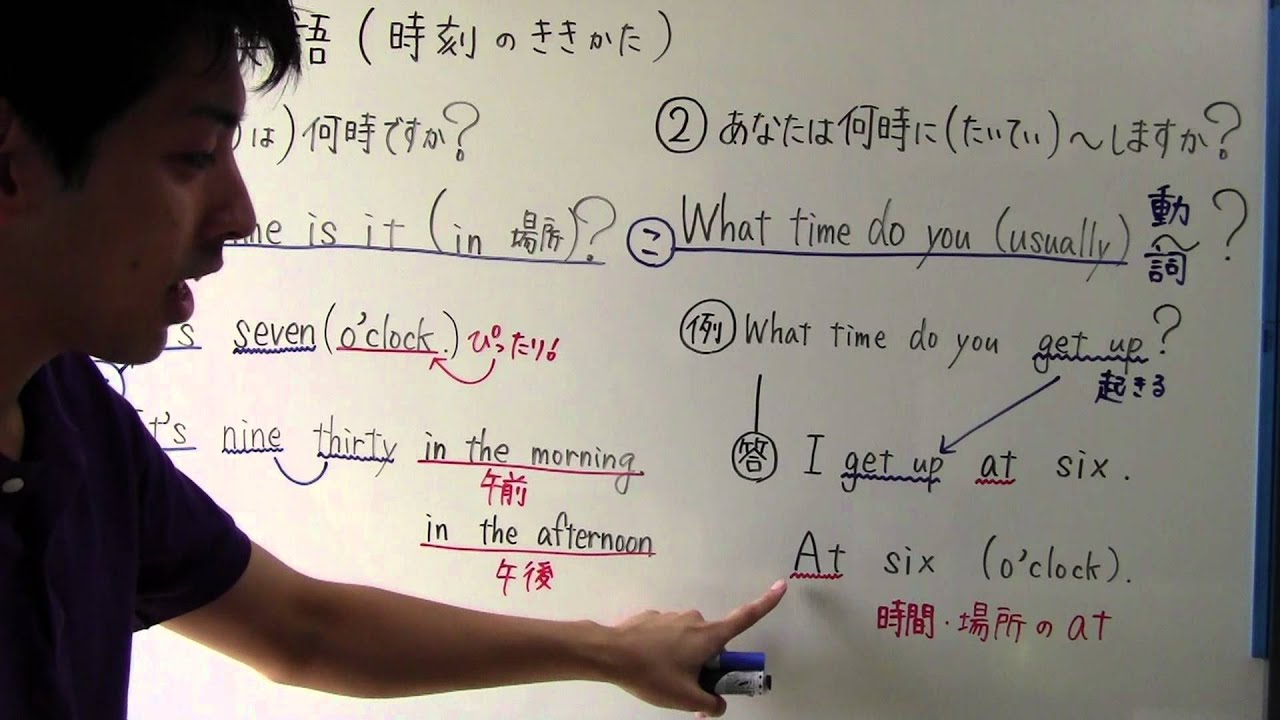 語(時刻のききかた)
は)何時ですか?
is it (in 場所)?
seven (o'clock.) ぴったり!
It's nine thirty in the morning.
午前
in the afternoon
午後
② あなたは何時に(たいてい)〜しますか?
= What time do you (usually) 動詞〜?
例 What time do you get up?
起きる
答 I get up at six.
At six (o'clock).
時間・場所のat